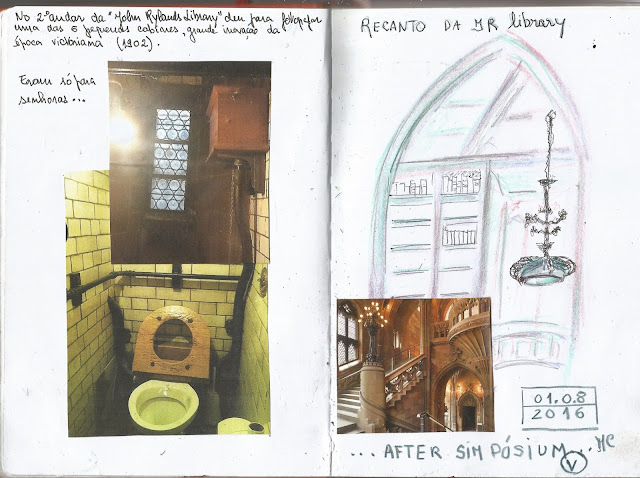 No 2º andar da "John Rylands Library" deu para fotografar
uma das 6 pequenas cabines, grande inovação da
época victoriana (1902).
Eram só para
senhoras...
RECANTO DA JR library
01.08
2016
... AFTER SIMPÓSIUM ... MC
V